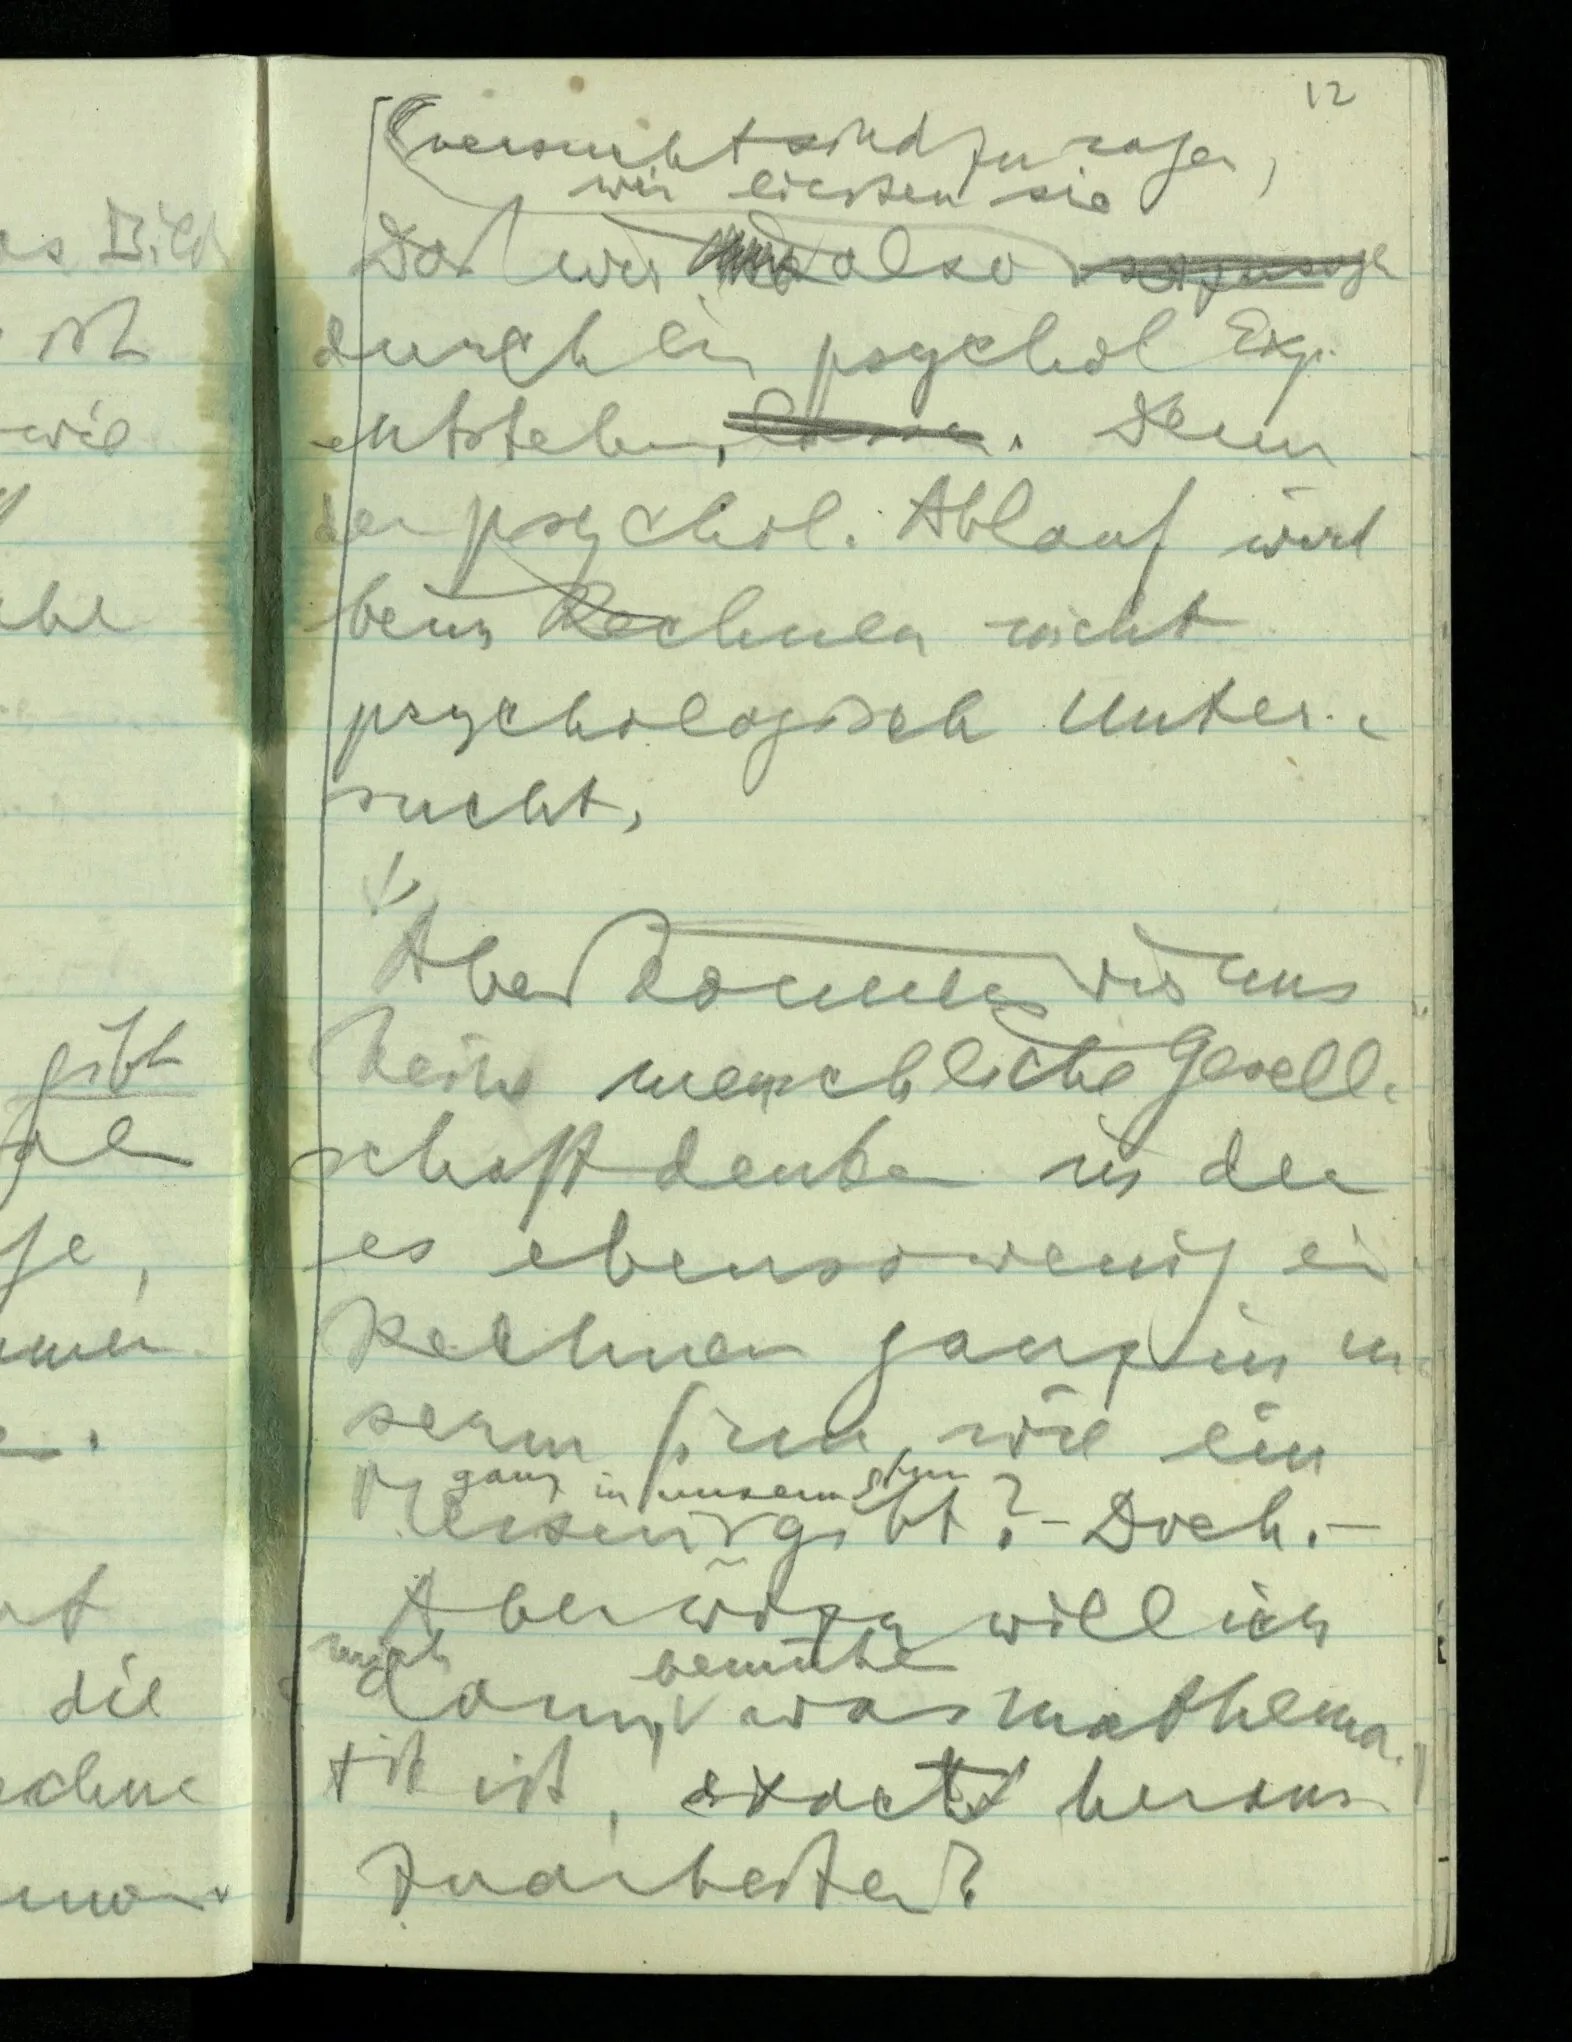 12
versucht sind zu sagen,
wir liessen sie
Das wir also
durch ein psychol Exp.
entstehen. Denn
der psychol. Ablauf wird
beim Rechnen nicht
psychologisch unter-
sucht.
Aber können wir uns
keine menschliche Gesell-
schaft denken in der
es ebensowenig ein
Rechnen ganz in un
serm Sinn, wie ein
ganz in unserm Sinn
Messen gibt? – Doch. –
Aber wozu will ich
mich bemühe
dann, was Mathema-
tik ist, exact heraus
zuarbeiten?
as Bild
ist
wie
gibt
die